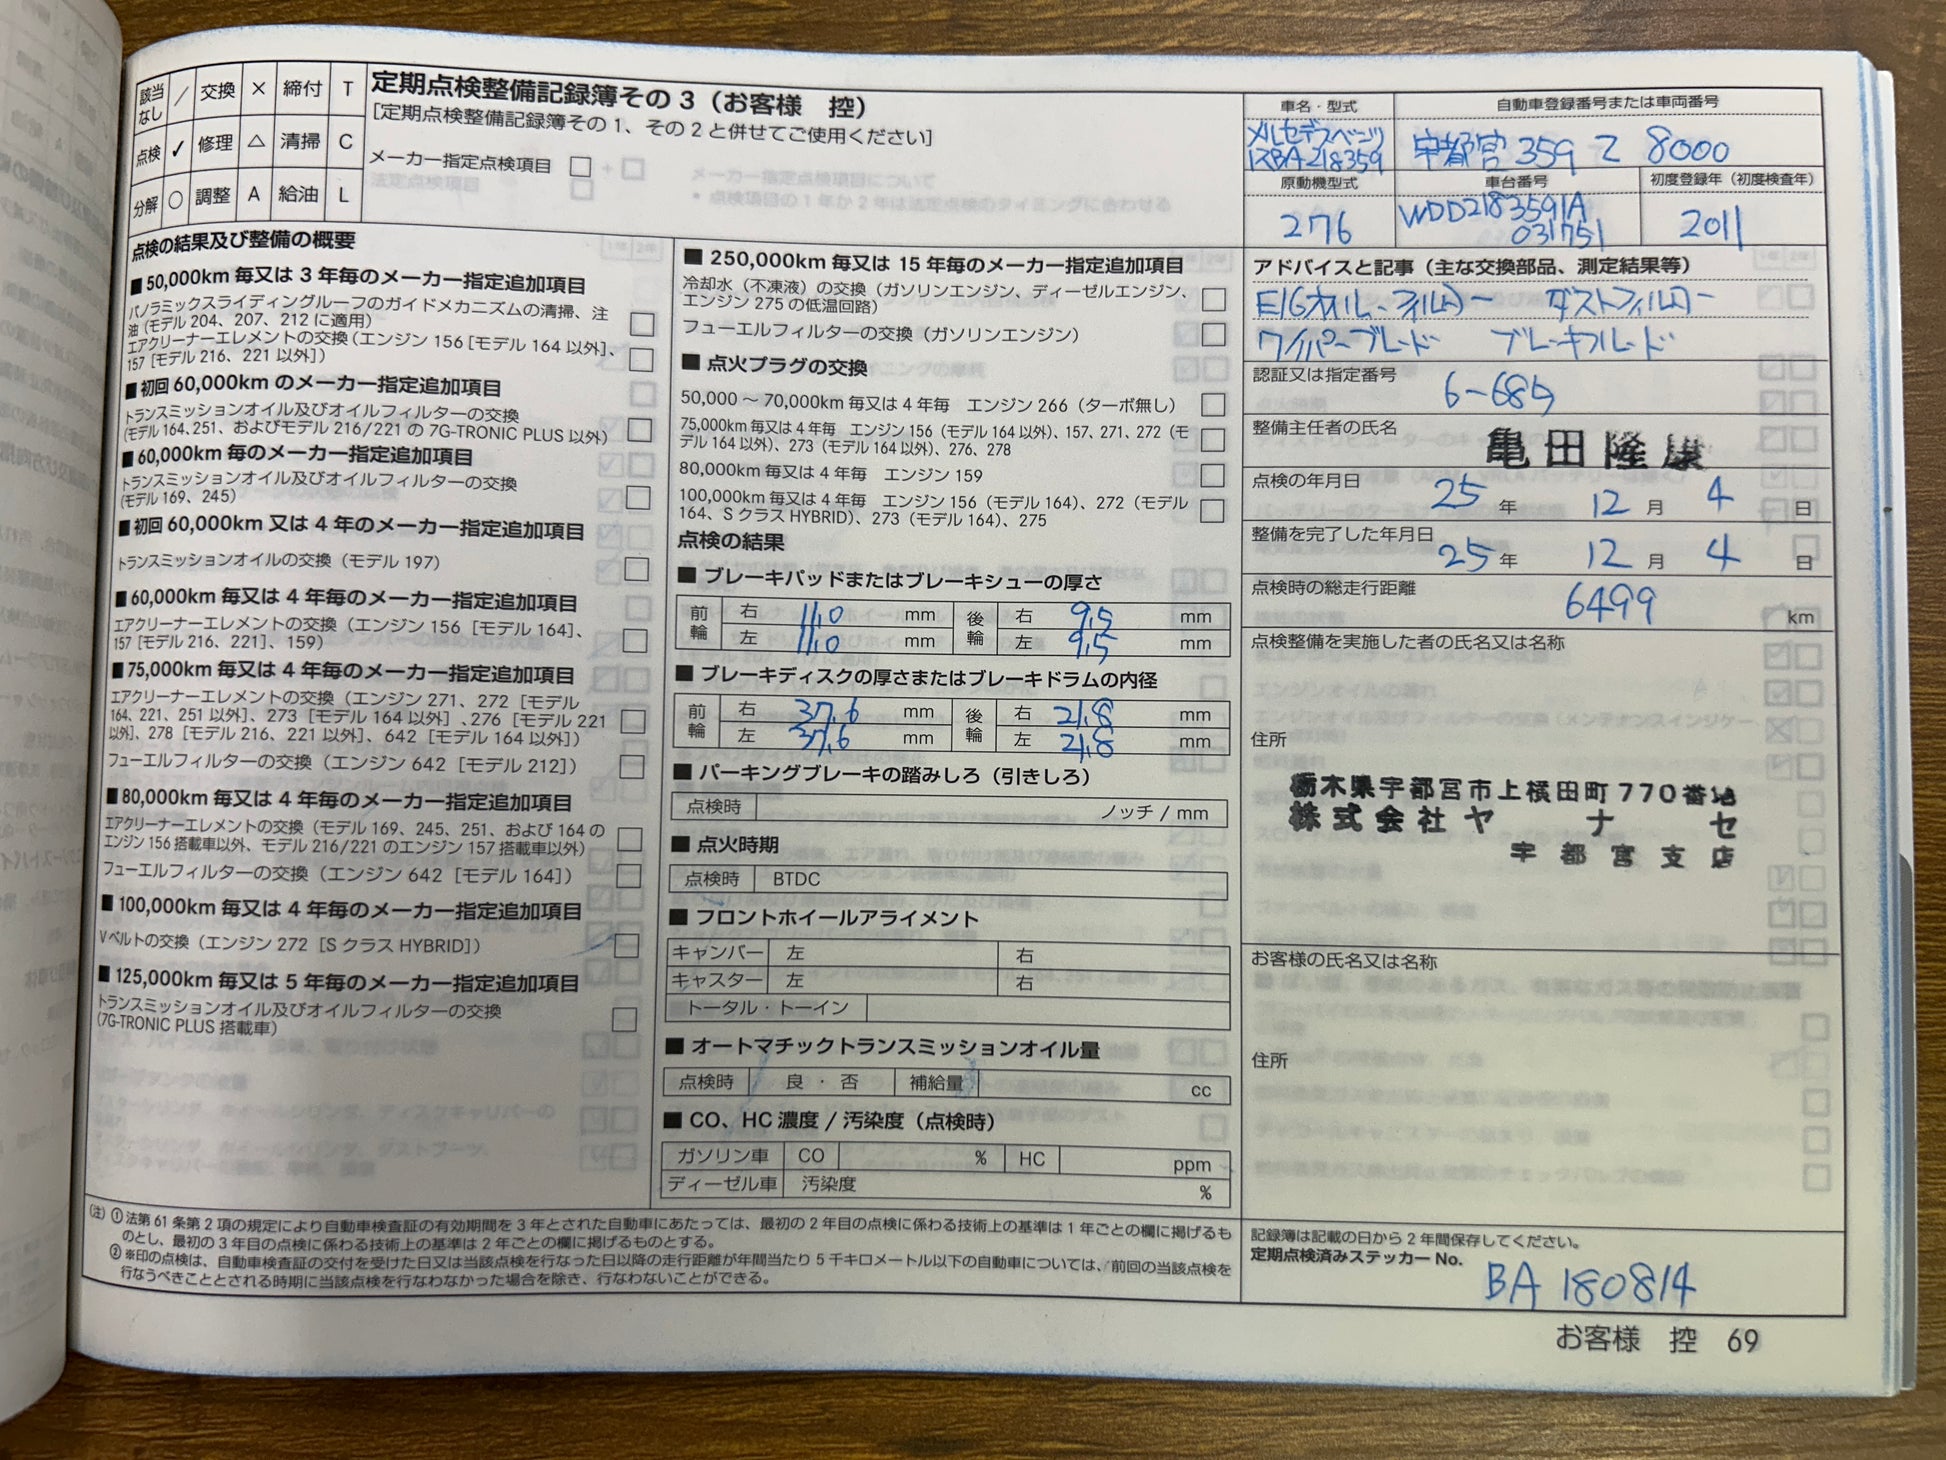 該当なし ／ 交換 × 締付 T
点検 ✓ 修理 △ 清掃 C
分解 ○ 調整 A 給油 L
定期点検整備記録簿その3（お客様　控）
[定期点検整備記録簿その1、その2と併せてご使用ください]
メーカー指定点検項目 □ + □
法定点検項目 □
メーカー指定点検項目について
• 点検項目の1年か2年は法定点検のタイミングに合わせる
点検の結果及び整備の概要
■ 50,000km 毎又は 3 年毎のメーカー指定追加項目
パノラミックスライディングルーフのガイドメカニズムの清掃、注
油（モデル 204、207、212 に適用） □
エアクリーナーエレメントの交換（エンジン 156 [モデル 164 以外]、
157 [モデル 216、221 以外]） □
■ 初回 60,000km のメーカー指定追加項目
トランスミッションオイル及びオイルフィルターの交換
(モデル 164、251、およびモデル 216/221 の 7G-TRONIC PLUS 以外) □
■ 60,000km 毎のメーカー指定追加項目
トランスミッションオイル及びオイルフィルターの交換
(モデル 169、245) □
■ 初回 60,000km 又は 4 年毎のメーカー指定追加項目
トランスミッションオイルの交換（モデル 197） □
■ 60,000km 毎又は 4 年毎のメーカー指定追加項目
エアクリーナーエレメントの交換（エンジン 156 [モデル 164]、
157 [モデル 216、221]、159) □
■ 75,000km 毎又は 4 年毎のメーカー指定追加項目
エアクリーナーエレメントの交換（エンジン 271、272 [モデル
164、221、251 以外]、273 [モデル 164 以外] 、276 [モデル 221
以外]、278 [モデル 216、221 以外]、642 [モデル 164 以外]） □
フューエルフィルターの交換（エンジン 642 [モデル 212]） □
■ 80,000km 毎又は 4 年毎のメーカー指定追加項目
エアクリーナーエレメントの交換（モデル 169、245、251、および 164 の
エンジン 156 搭載車以外、モデル 216/221 のエンジン 157 搭載車以外） □
フューエルフィルターの交換（エンジン 642 [モデル 164]） □
■ 100,000km 毎又は 4 年毎のメーカー指定追加項目
V ベルトの交換（エンジン 272 [S クラス HYBRID]） □
■ 125,000km 毎又は 5 年毎のメーカー指定追加項目
トランスミッションオイル及びオイルフィルターの交換
(7G-TRONIC PLUS 搭載車) □
■ 250,000km 毎又は 15 年毎のメーカー指定追加項目
冷却水（不凍液）の交換（ガソリンエンジン、ディーゼルエンジン、
エンジン 275 の低温回路） □
フューエルフィルターの交換（ガソリンエンジン） □
■ 点火プラグの交換
50,000 ～ 70,000km 毎又は 4 年毎　エンジン 266（ターボ無し） □
75,000km 毎又は 4 年毎　エンジン 156（モデル 164 以外）、157、271、272（モ
デル 164 以外）、273（モデル 164 以外）、276、278 □
80,000km 毎又は 4 年毎　エンジン 159 □
100,000km 毎又は 4 年毎　エンジン 156（モデル 164）、272（モデル
164、S クラス HYBRID）、273（モデル 164）、275 □
点検の結果
■ ブレーキパッドまたはブレーキシューの厚さ
前輪 右 11.0 mm 後輪 右 9.5 mm
左 11.0 mm 左 9.5 mm
■ ブレーキディスクの厚さまたはブレーキドラムの内径
前輪 右 37.6 mm 後輪 右 21.8 mm
左 37.6 mm 左 21.8 mm
■ パーキングブレーキの踏みしろ（引きしろ）
点検時 ノッチ / mm
■ 点火時期
点検時 BTDC
■ フロントホイールアライメント
キャンバー 左 右
キャスター 左 右
トータル・トーイン
■ オートマチックトランスミッションオイル量
点検時 良 ・ 否 補給量 cc
■ CO、HC 濃度 / 汚染度（点検時）
ガソリン車 CO % HC ppm
ディーゼル車 汚染度 %
車名・型式 自動車登録番号または車両番号
メルセデスベンツ
RBA218359 宇都宮 359 Z 8000
原動機型式 車台番号 初度登録年（初度検査年）
276 WDD2183591A
031751 2011
アドバイスと記事（主な交換部品、測定結果等）
E/Gオイル、フィルター ダストフィルター
ワイパーブレード ブレーキフルード
認証又は指定番号 6-685
整備主任者の氏名 亀田隆康
点検の年月日 25 年 12 月 4 日
整備を完了した年月日 25 年 12 月 4 日
点検時の総走行距離 6499 km
点検整備を実施した者の氏名又は名称
住所
栃木県宇都宮市上横田町770番地
株式会社ヤナセ
宇都宮支店
お客様の氏名又は名称
住所
(注) ① 法第 61 条第 2 項の規定により自動車検査証の有効期間を 3 年とされた自動車にあたっては、最初の 2 年目の点検に係わる技術上の基準は 1 年ごとの欄に掲げるも
のとし、最初の 3 年目の点検に係わる技術上の基準は 2 年ごとの欄に掲げるものとする。
② ※印の点検は、自動車検査証の交付を受けた日又は当該点検を行なった日以降の走行距離が年間当たり 5 千キロメートル以下の自動車については、前回の当該点検を
行なうべきこととされる時期に当該点検を行なわなかった場合を除き、行なわないことができる。
記録簿は記載の日から 2 年間保存してください。
定期点検済みステッカー No.
BA 180814
お客様　控　69